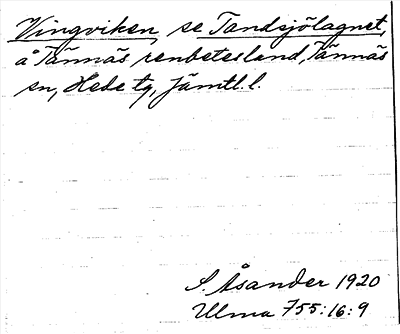 Vingviken, se Tandsjölagnet,
å Tännäs renbetesland, Tännäs
sn, Hede tg, Jämtl. l.
S. Åsander 1920
Ulma 755:16:9